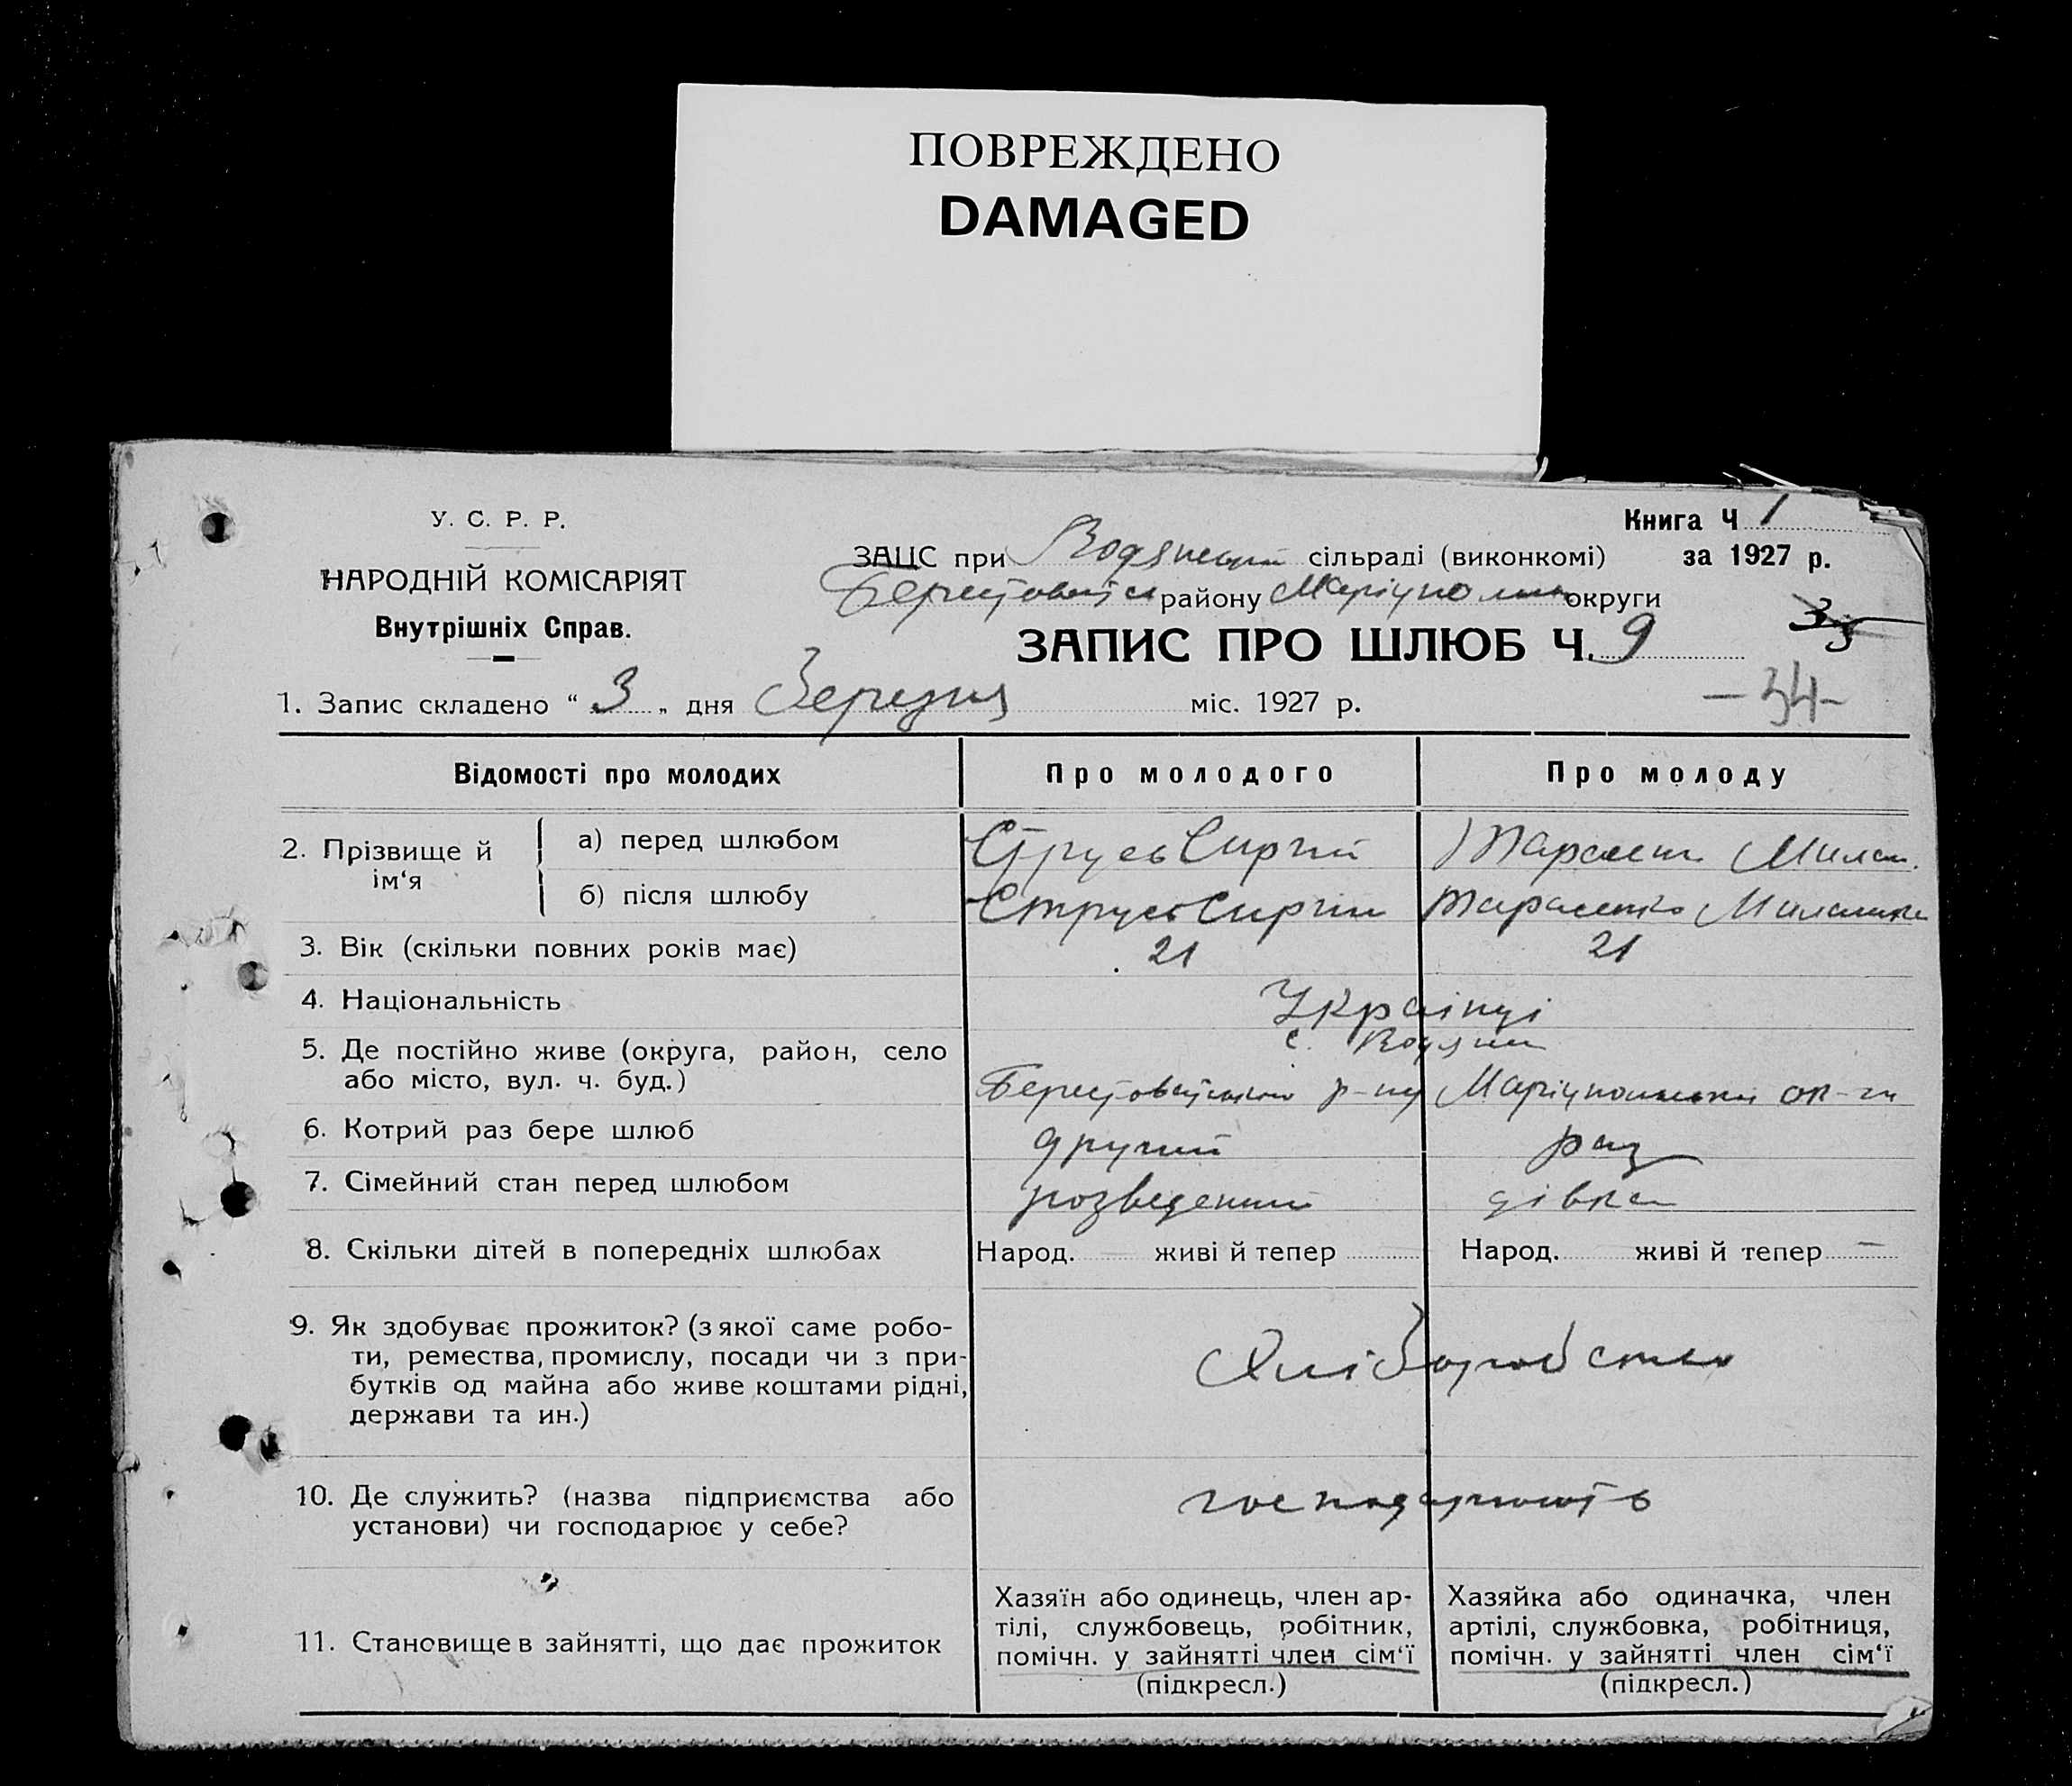 ПОВРЕЖДЕНО
DAMAGED
У. С. Р. Р.
НАРОДНІЙ КОМІСАРІЯТ
Внутрішніх Справ.
Книга Ч 1
за 1927 р.
ЗАЦС при сільраді (виконкомі)
району округи
ЗАПИС ПРО ШЛЮБ Ч. 9
-34-
1. Запис складено “ 3 „ дня Березня міс. 1927 р.
Відомості про молодих Про молодого Про молоду
2. Прізвище й ім‘я
а) перед шлюбом Струсь Сиргій
б) після шлюбу Струсь Сиргій Тарасенко
3. Вік (скільки повних років має) 21 21
4. Національність Українці
5. Де постійно живе (округа, район, село
с. Водяни
або місто, вул. ч. буд.) р-ну ок-ги
6. Котрий раз бере шлюб другий раз
7. Сімейний стан перед шлюбом розведений дівка
8. Скільки дітей в попередніх шлюбах Народ. живі й тепер Народ. живі й тепер —
9. Як здобуває прожиток? (з якої саме робо-
ти, ремества, промислу, посади чи з при-
бутків од майна або живе коштами рідні,
держави та ин.)
Хліборобство
10. Де служить? (назва підприємства або
установи) чи господарює у себе?
11. Становище в зайнятті, що дає прожиток
Хазяїн або одинець, член ар-
тілі, службовець, робітник,
помічн. у зайнятті член сім‘ї
(підкресл.)
Хазяйка або одиначка, член
артілі, службовка, робітниця,
помічн. у зайнятті член сім‘ї
(підкресл.)